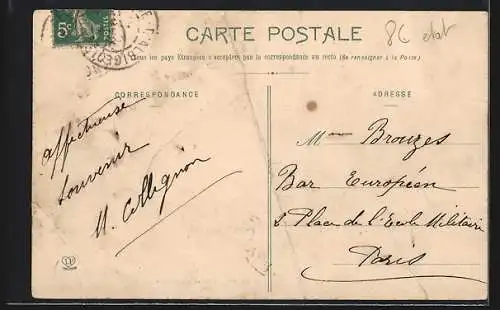 5c
POSTES
ALBIGEOIS
CARTE POSTALE
8€ état
Tous les pays Étrangers n'acceptent pas la correspondance au recto (Se renseigner à la Poste)
CORRESPONDANCE
affectueuse
souvenir
M. Collignon
LL
ADRESSE
Mme Brouzes
Bar Européen
2 Place de l'Ecole Militaire
Paris